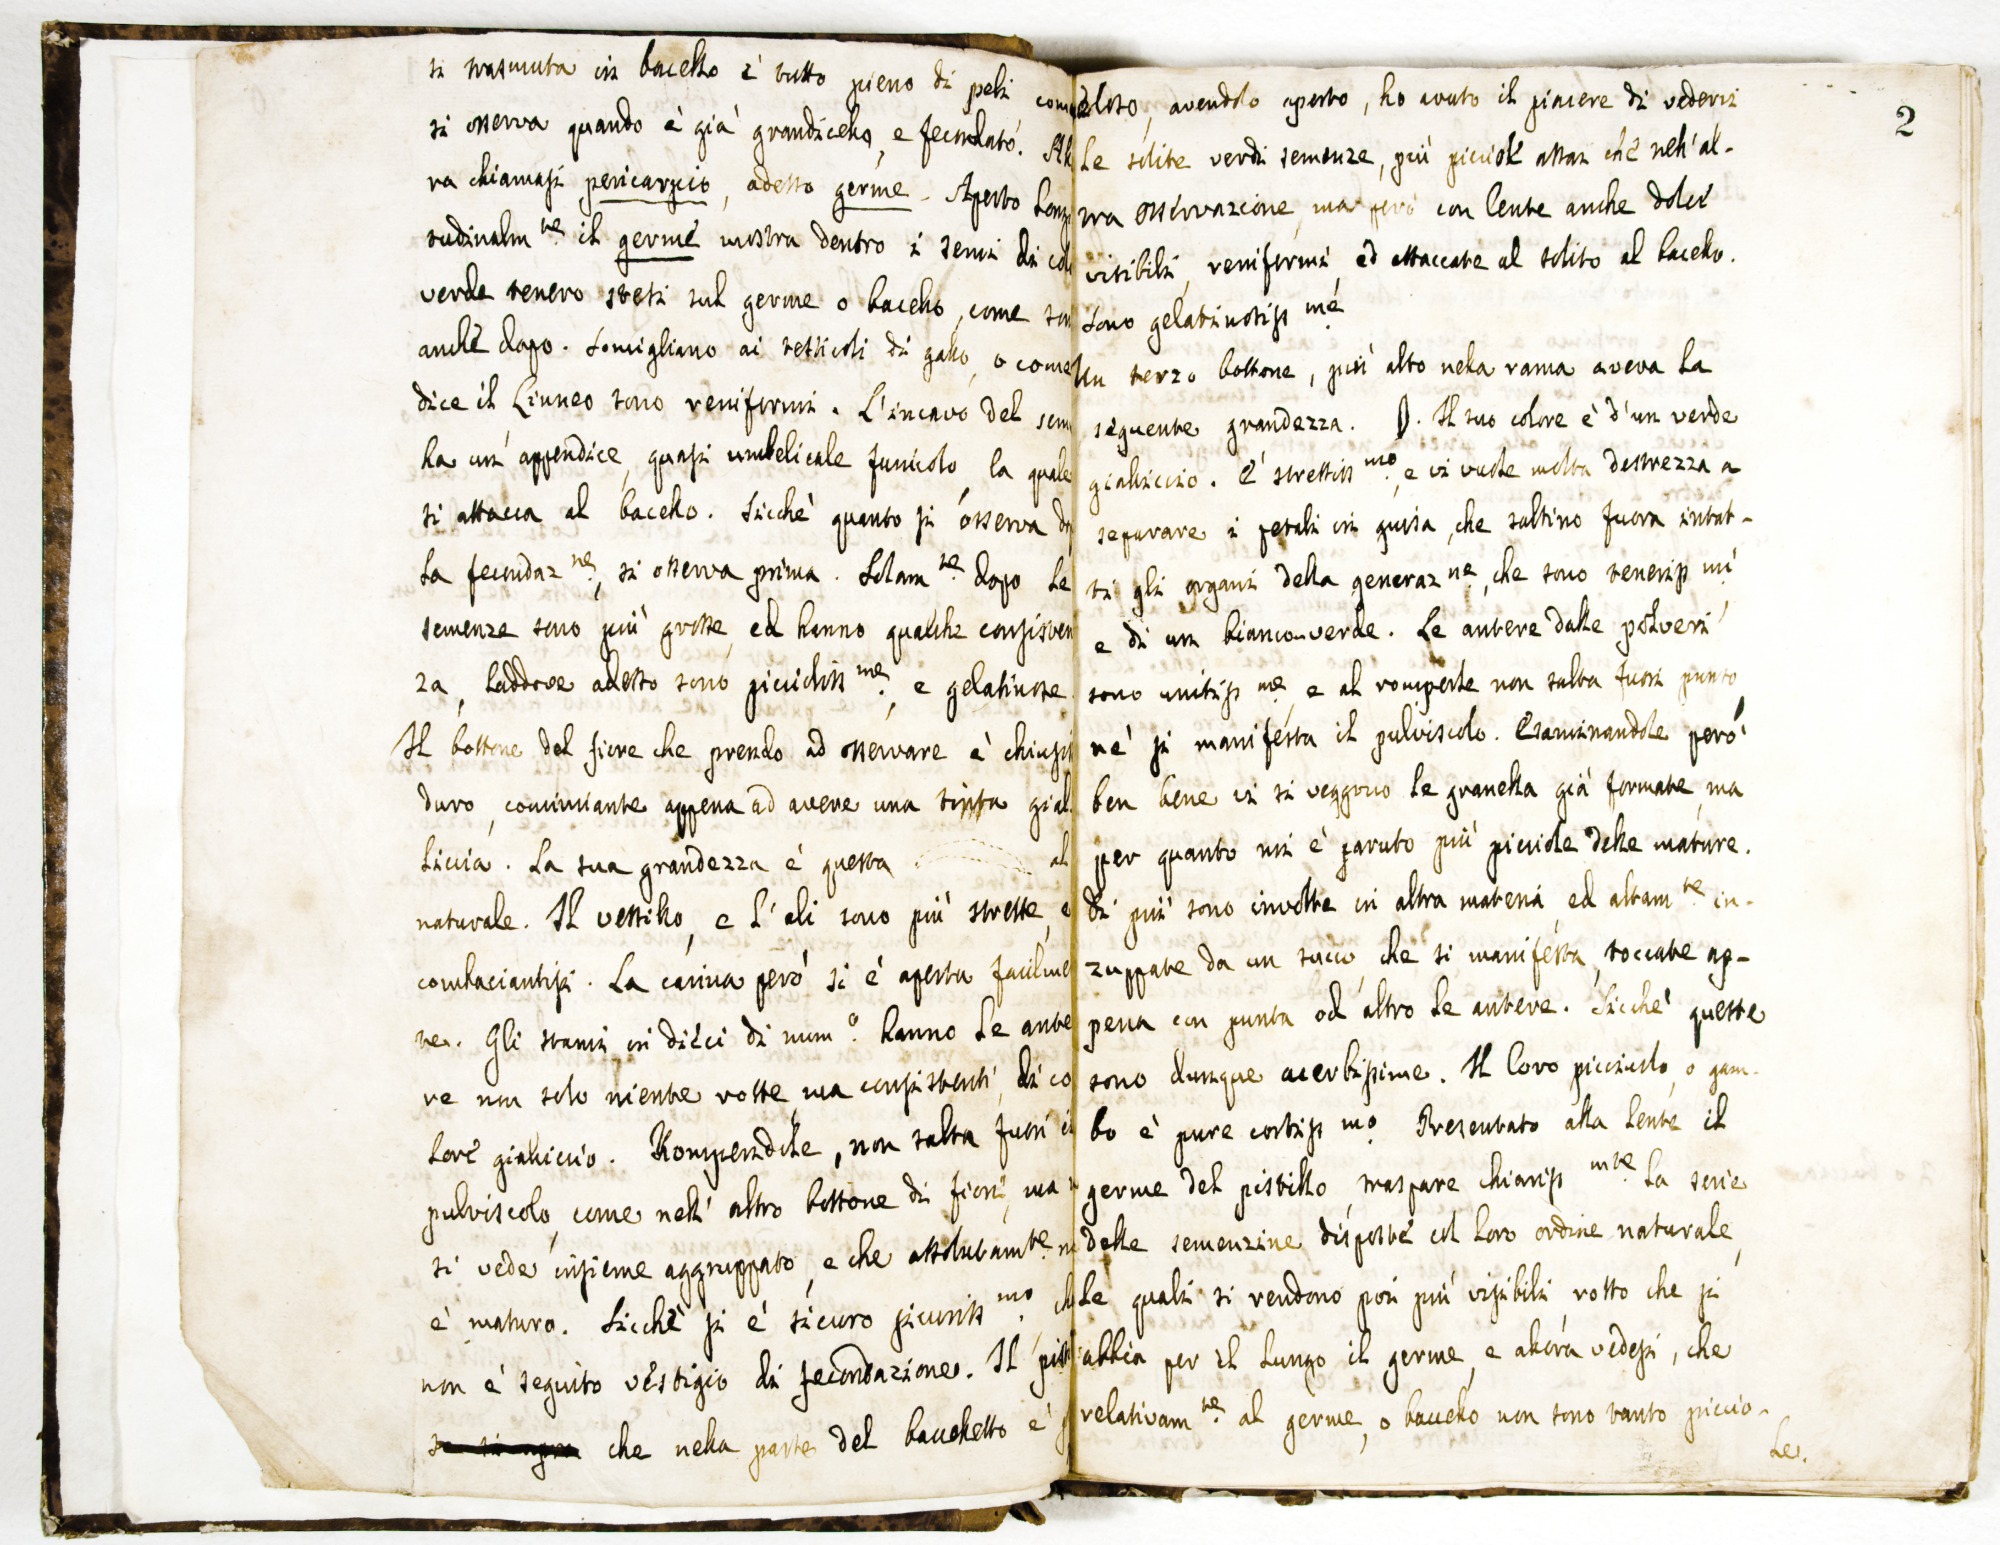 si trasmuta in bacello è tutto pieno di peli com
si osserva quando è già grandicello, e fecondato. Al
ra chiamasi pericarpio, adesso germe. Aperto Longi
tudinalm.te il germe mostra dentro i semi di col
verde tenero stesi sul germe o bacello, come son
anche dopo. Somigliano ai testicoli di gallo, o come
dice il Linneo sono reniformi. L'incavo del sem
ha un' appendice, quasi umbelicale funicolo, la quale
si attacca al bacello. Sicchè quanto si osserva do
la fecondaz.ne, si osserva prima. Solam.te dopo le
semenze sono più grosse, ed hanno qualche consisten
za, laddove adesso sono piccioliss.me, e gelatinose.
Il bottone del fiore che prendo ad osservare è chiuso
duro, cominciante appena ad avere una tinta gial
liccia. La sua grandezza è questa al
naturale. Il vessillo, e l'ali sono più strette, e
combaciantisi. La carina però si è aperta facilme
te. Gli stami in dieci di num.o hanno le ante
re non solo niente rotte, ma consistenti, di co
lore gialliccio. Rompendole, non salta fuori il
pulviscolo, come nell' altro bottone di fiori, ma
si vede insieme aggruppato, e che assolutam.te n
è maturo. Sicchè si è sicuro sicuriss.mo, ch
non è seguito vestigio di fecondazione. Il pist
che nella parte del baccelletto è
loso, avendolo aperto, ho avuto il piacere di vedervi
le solite verdi semenze, più picciole assai che nell'al-
tra osservazione, ma però con lente anche dolce
visibili, reniformi, ed attaccate al solito al bacello.
Sono gelatinosiss.me
Un terzo bottone, più alto nella rama aveva la
seguente grandezza. Il suo colore è d'un verde
gialliccio. È strettiss.mo, e vi vuole molta destrezza a
separare i petali in guisa, che saltino fuora intat-
ti gli organi della generaz.ne, che sono teneriss.mi
e di un bianco-verde. Le antere dalle polveri
sono unitiss.me, e al romperle non salta fuori punto,
nè si manifesta il pulviscolo. Esaminandole però
ben bene vi si veggono le granella già formate, ma
per quanto mi è paruto più picciole delle mature.
di più sono involte in altra materia, ed altam.te in-
zuppate da un succo, che si manifesta, toccate ap-
pena con punta od altro le antere. Sicchè queste
sono dunque acerbissime. Il loro picciuolo, o gam-
bo è pure cortiss.mo. Presentato alla lente il
germe del pistillo, traspare chiariss.mte la serie
delle semenzine disposte col loro ordine naturale,
le quali si rendono poi più visibili rotto che si
abbia per il lungo il germe, e allora vedesi, che
relativam.te al germe, o baccello non sono tanto piccio-
le.
2